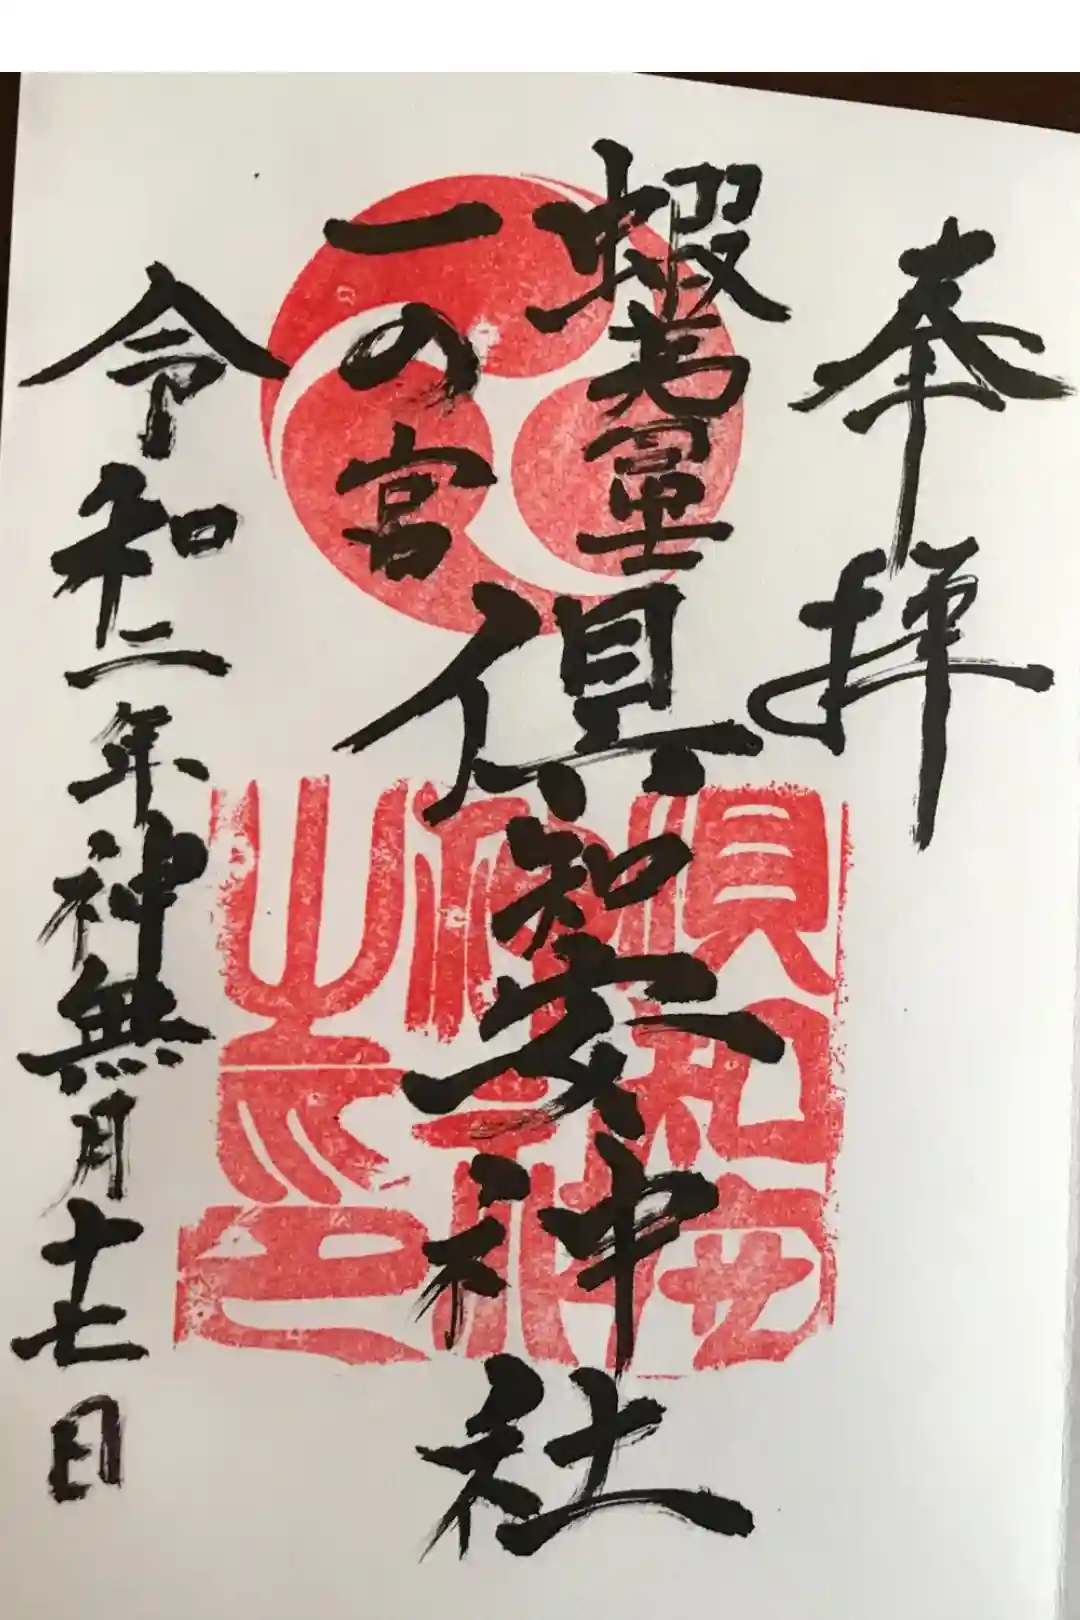 奉拝
蝦夷富士
一の宮
倶知安神社
令和二年神無月十七日
倶知安
神社
之印